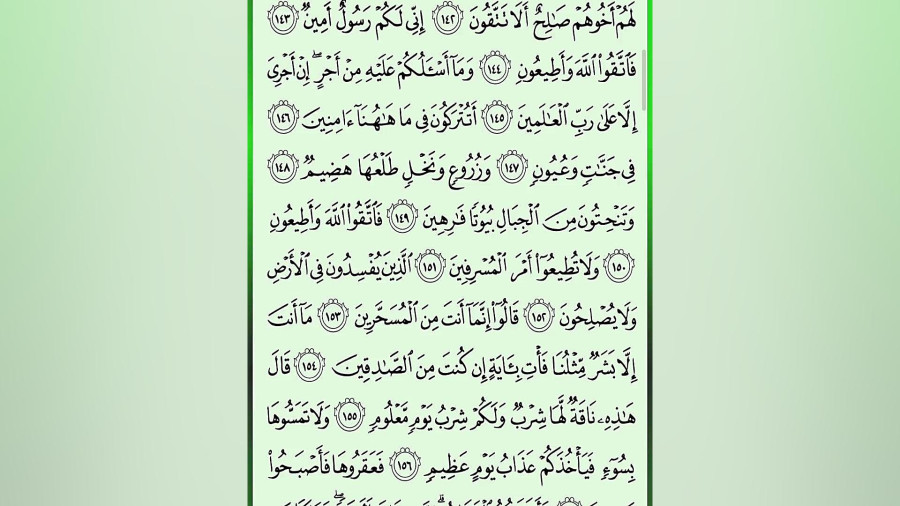 لَهُمْ أَخُوهُمْ صَٰلِحٌ أَلَا تَتَّقُونَ ١٤٢ إِنِّى لَكُمْ رَسُولٌ أَمِينٌ ١٤٣
فَٱتَّقُوا۟ ٱللَّهَ وَأَطِيعُونِ ١٤٤ وَمَآ أَسْـَٔلُكُمْ عَلَيْهِ مِنْ أَجْرٍ ۖ إِنْ أَجْرِىَ
إِلَّا عَلَىٰ رَبِّ ٱلْعَـٰلَمِينَ ١٤٥ أَتُتْرَكُونَ فِى مَا هَـٰهُنَآ ءَامِنِينَ ١٤٦
فِى جَنَّـٰتٍ وَعُيُونٍ ١٤٧ وَزُرُوعٍ وَنَخْلٍ طَلْعُهَا هَضِيمٌ ١٤٨
وَتَنْحِتُونَ مِنَ ٱلْجِبَالِ بُيُوتًا فَـٰرِهِينَ ١٤٩ فَٱتَّقُوا۟ ٱللَّهَ وَأَطِيعُونِ
١٥٠ وَلَا تُطِيعُوٓا۟ أَمْرَ ٱلْمُسْرِفِينَ ١٥١ ٱلَّذِينَ يُفْسِدُونَ فِى ٱلْأَرْضِ
وَلَا يُصْلِحُونَ ١٥٢ قَالُوٓا۟ إِنَّمَآ أَنتَ مِنَ ٱلْمُسَحَّرِينَ ١٥٣ مَآ أَنتَ
إِلَّا بَشَرٌ مِّثْلُنَا فَأْتِ بِـَٔايَةٍ إِن كُنتَ مِنَ ٱلصَّـٰدِقِينَ ١٥٤ قَالَ
هَـٰذِهِۦ نَاقَةٌ لَّهَا شِرْبٌ وَلَكُمْ شِرْبُ يَوْمٍ مَّعْلُومٍ ١٥٥ وَلَا تَمَسُّوهَا
بِسُوٓءٍ فَيَأْخُذَكُمْ عَذَابُ يَوْمٍ عَظِيمٍ ١٥٦ فَعَقَرُوهَا فَأَصْبَحُوا۟